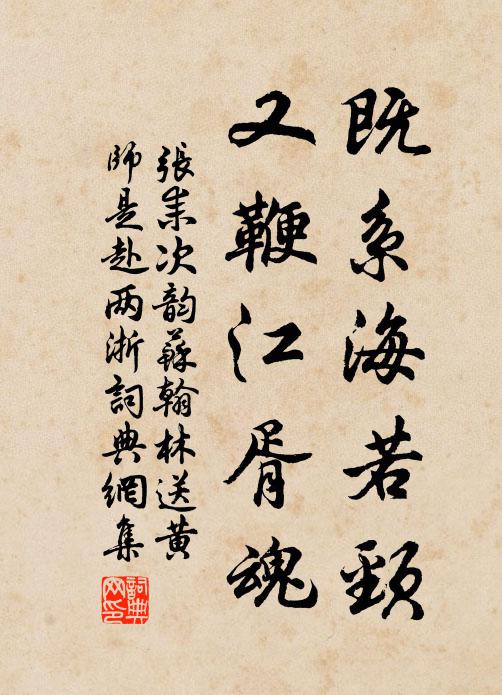 既系海若頸
又鞭江胥魂
張耒次韵蘇翰林送黄
師是赴两浙詞典網集
詞典网印